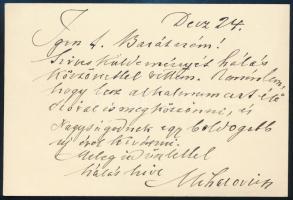 Decz 24.
Igen t. Barátom!
Szives küldeményét hálás
köszönettel vettem. Remélem,
hogy lesz alkalmam azt élő
szóval is megköszönni, és
Nagyságodnak egy boldogabb
uj évet kivánni.
Meleg üdvözlettel
hálás hive
Mihalovich